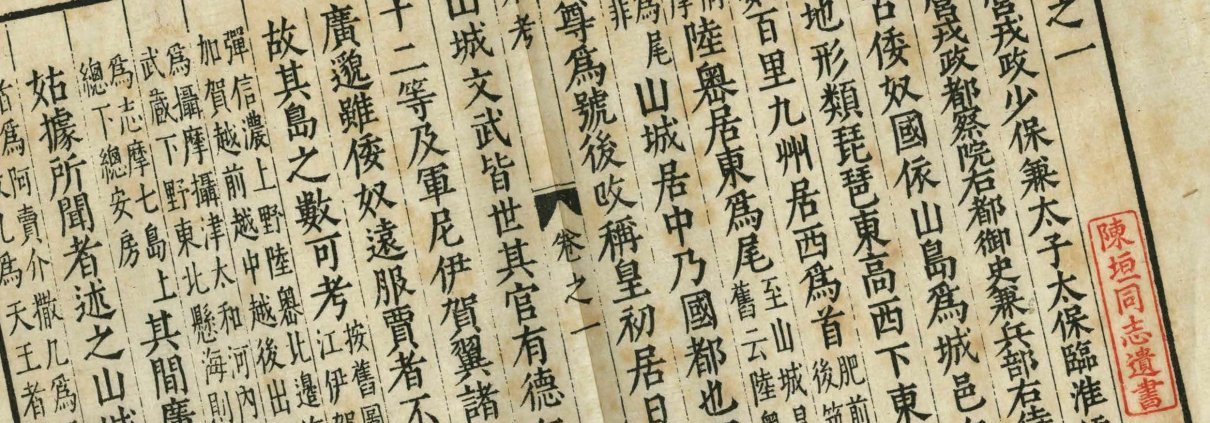 之一
宮戎政少保兼太子太保臨淮
宮戎政都察院右都御史兼兵部右侍
古倭奴國依山島爲城邑
地形類琵琶東高西下東
百里九州居西爲首
肥前
後筑
陸奥居東爲尾
至山城
舊云陸奥
爲尾
非
山城居中乃國都也
尊爲號後改稱皇初居日
卷之一
考
山城文武皆世其官有德
十二等及軍尼伊賀翼諸
廣邈雖倭奴遠服賈者不
故其島之數可考
按舊圖
江伊賀
彈信濃上野陸奥比邊
加賀越前越中越後出
爲攝摩攝津太和河內
武蔵下野東北懸海則
爲志摩七島上其間廣
總下總安房
姑據所聞者述之山城
首爲阿賣介撒几爲
几爲天王者
陳垣同志遺書